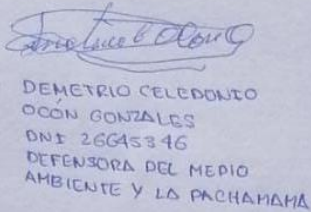 DEMETRIO CELEDONIO
OCÓN GONZALES
DNI 26645346
DEFENSORA DEL MEDIO
AMBIENTE Y LA PACHAMAMA